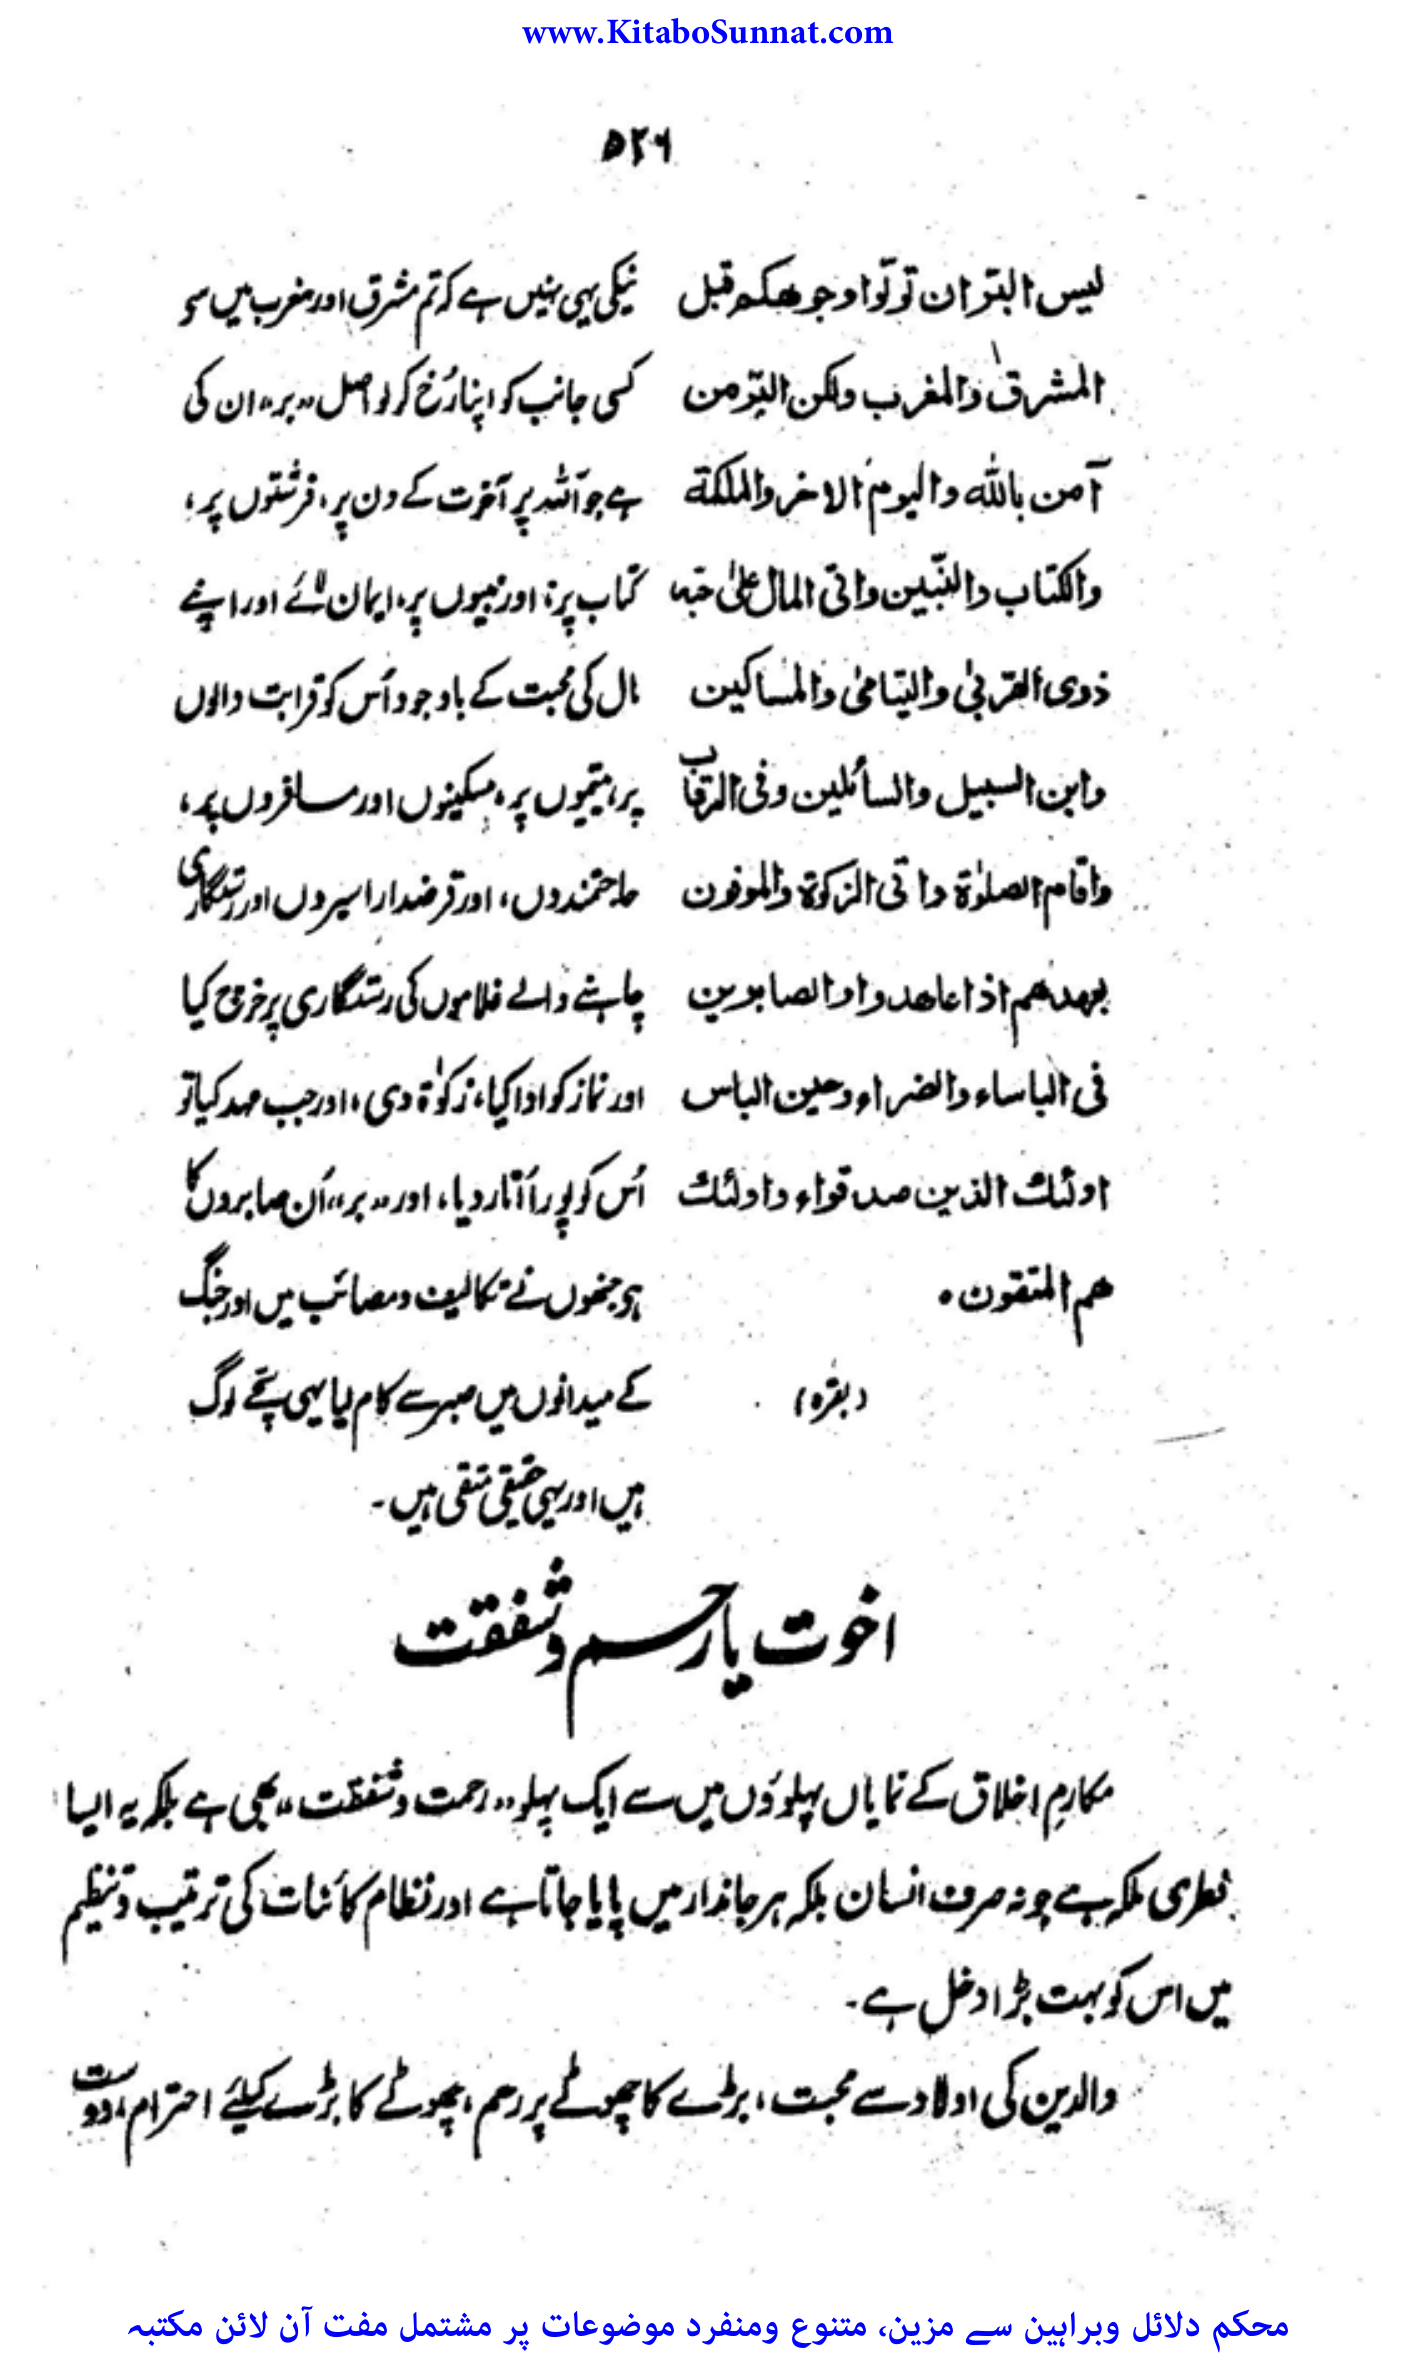 www.KitaboSunnat.com
۵۲۶
لیس البّر ان تولّوا وجوهکم قبل
المشرق والمغرب ولکن البّر من
آمن بالله والیوم الاخر والملٰکة
والکتاب والنبّین واتی المال علیٰ حبّہ
ذوی القربیٰ والیتامیٰ والمساکین
وابن السبیل والسائلین وفی الرقاب
واقام الصلوٰة واتی الزکوٰة والموفون
بعهدهم اذا عاهدوا والصابرین
فی الباساء والضراء وحین الباس
اولئك الذین صدقواء واولئك
هم المتقون ۰
(بقرہ)
نیکی یہی نہیں ہے کہ تم مشرق اور مغرب میں سے
کسی جانب کو اپنا رُخ کر لو اصل "بر" ان کی
ہے جو اللہ پر آخرت کے دن پر، فرشتوں پر،
کتاب پر، اور نبیوں پر، ایمان لائے اور اپنے
مال کی محبت کے باوجود اُس کو قرابت والوں
پر، یتیموں پر، مسکینوں اور مسافروں پر،
حاجتمندوں، اور قرضدار اسیروں اور رستگاری
چاہنے والے غلاموں کی رستگاری پر خرچ کیا
اور نماز کو ادا کیا، زکوٰۃ دی، اور جب عہد کیا تو
اُس کو پورا اُتار دیا، اور "بر" اُن صابروں کا
ہے جنھوں نے تکالیف و مصائب میں اور جنگ
کے میدانوں میں صبر سے کام لیا یہی سچّے لوگ
ہیں اور یہی حقیقی متقی ہیں۔
اخوت یا رحم و شفقت
مکارمِ اخلاق کے نمایاں پہلوؤں میں سے ایک پہلو "رحمت و شفقت" بھی ہے بلکہ یہ ایسا
فطری ملکہ ہے جو نہ صرف انسان بلکہ ہر جاندار میں پایا جاتا ہے اور نظام کائنات کی ترتیب و تنظیم
میں اس کو بہت بڑا دخل ہے۔
والدین کی اولاد سے محبت، بڑے کا چھوٹے پر رحم، چھوٹے کا بڑے کیلئے احترام، دوست
محکم دلائل وبراہین سے مزین، متنوع ومنفرد موضوعات پر مشتمل مفت آن لائن مکتبہ